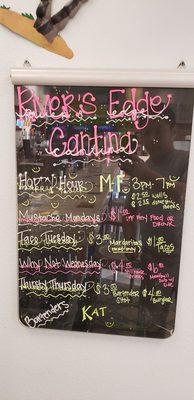 River's Edge
Cantina
Happy Hour M-F 3PM-7PM
$2.50 wells
$2.25 domestic
Mustache Mondays $1 off any Food or
Drink
Taco Tuesday $3 Margaritas $1 Tacos
Why Not Wednesday $4 $6
Thirsty Thursday $3 Bartender $4 Burger
Shot
Bartenders
KAT